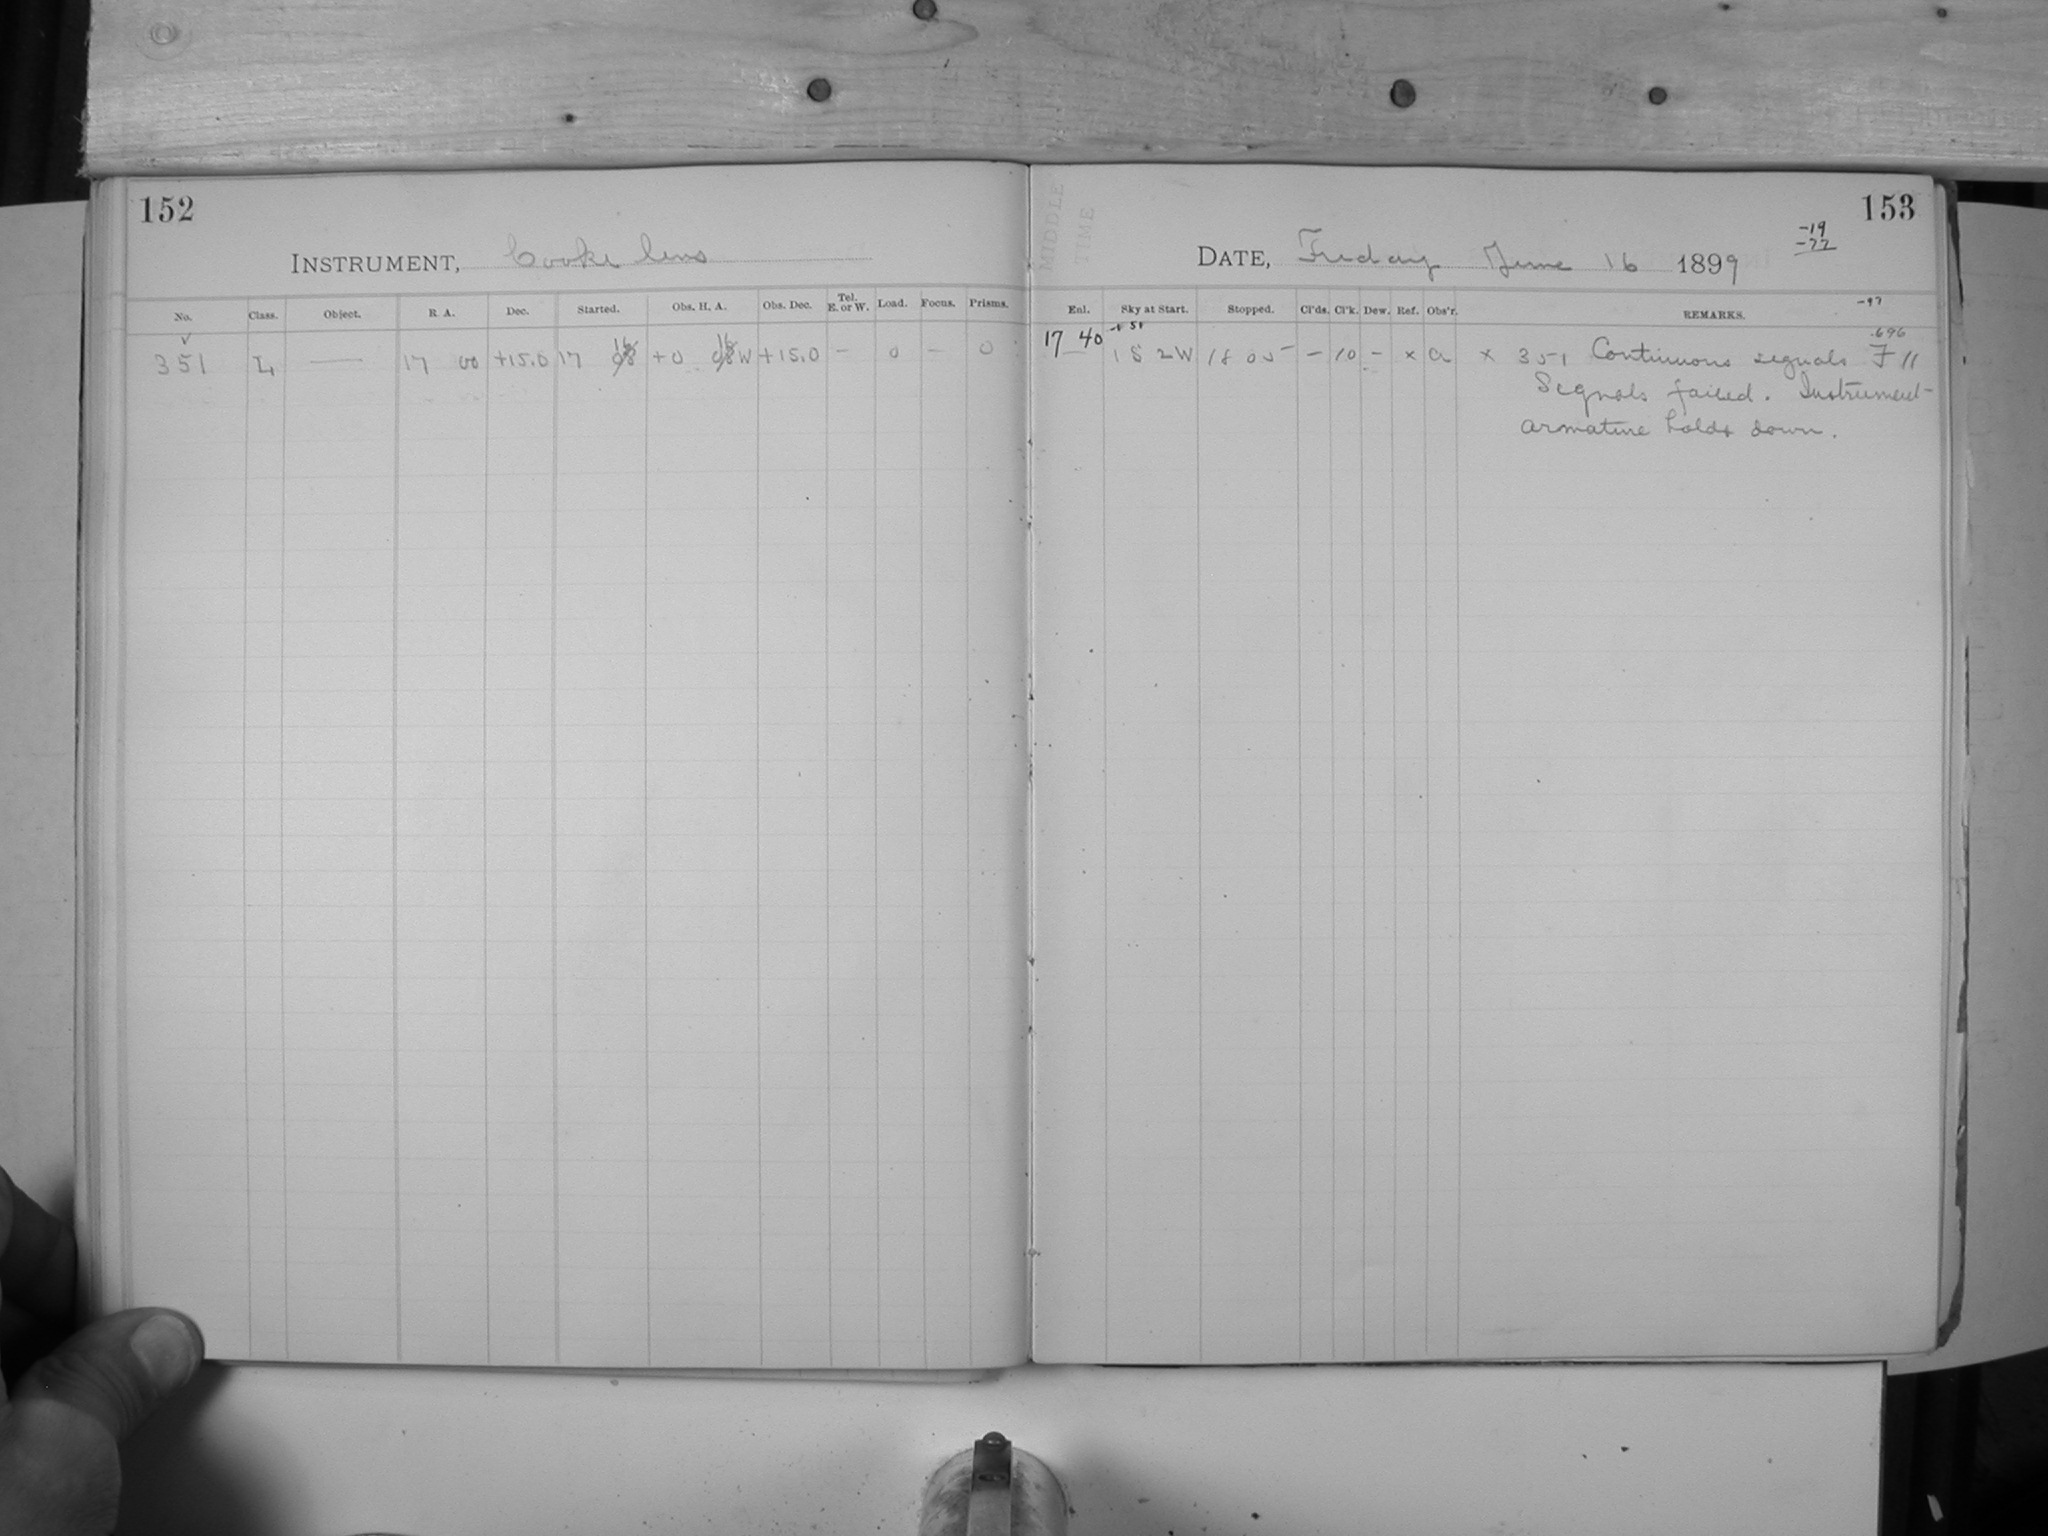 152
INSTRUMENT, Cooke lens
No. Class. Object. R. A. Dec. Started. Obs. H. A. Obs. Dec. Tel. E. or W. Load. Focus. Prisms.
351 L — 17 00 +15.0 17 16 +0 16 W +15.0 — 0 — 0
MIDDLE
TIME
153
-19
-77
DATE, Friday June 16 1899
-97
Enl. Sky at Start. Stopped. Cl'ds. Cl'k. Dew. Ref. Obs'r. REMARKS.
.696
17 40 1 S 2 W 18 05 — 10 - × a × 351 Continuous signals F 11
Signals failed. Instrument-
armature holds down.